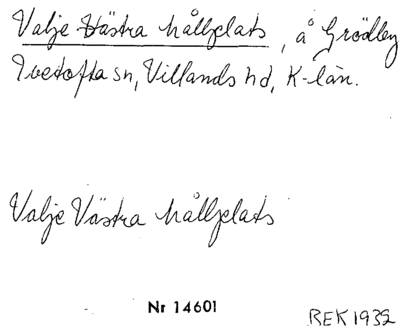 Valje Västra hållplats, å Grödby
Ivetofta sn, Villands hd, K-län.
Valje Västra hållplats
Nr 14601
REK 1932